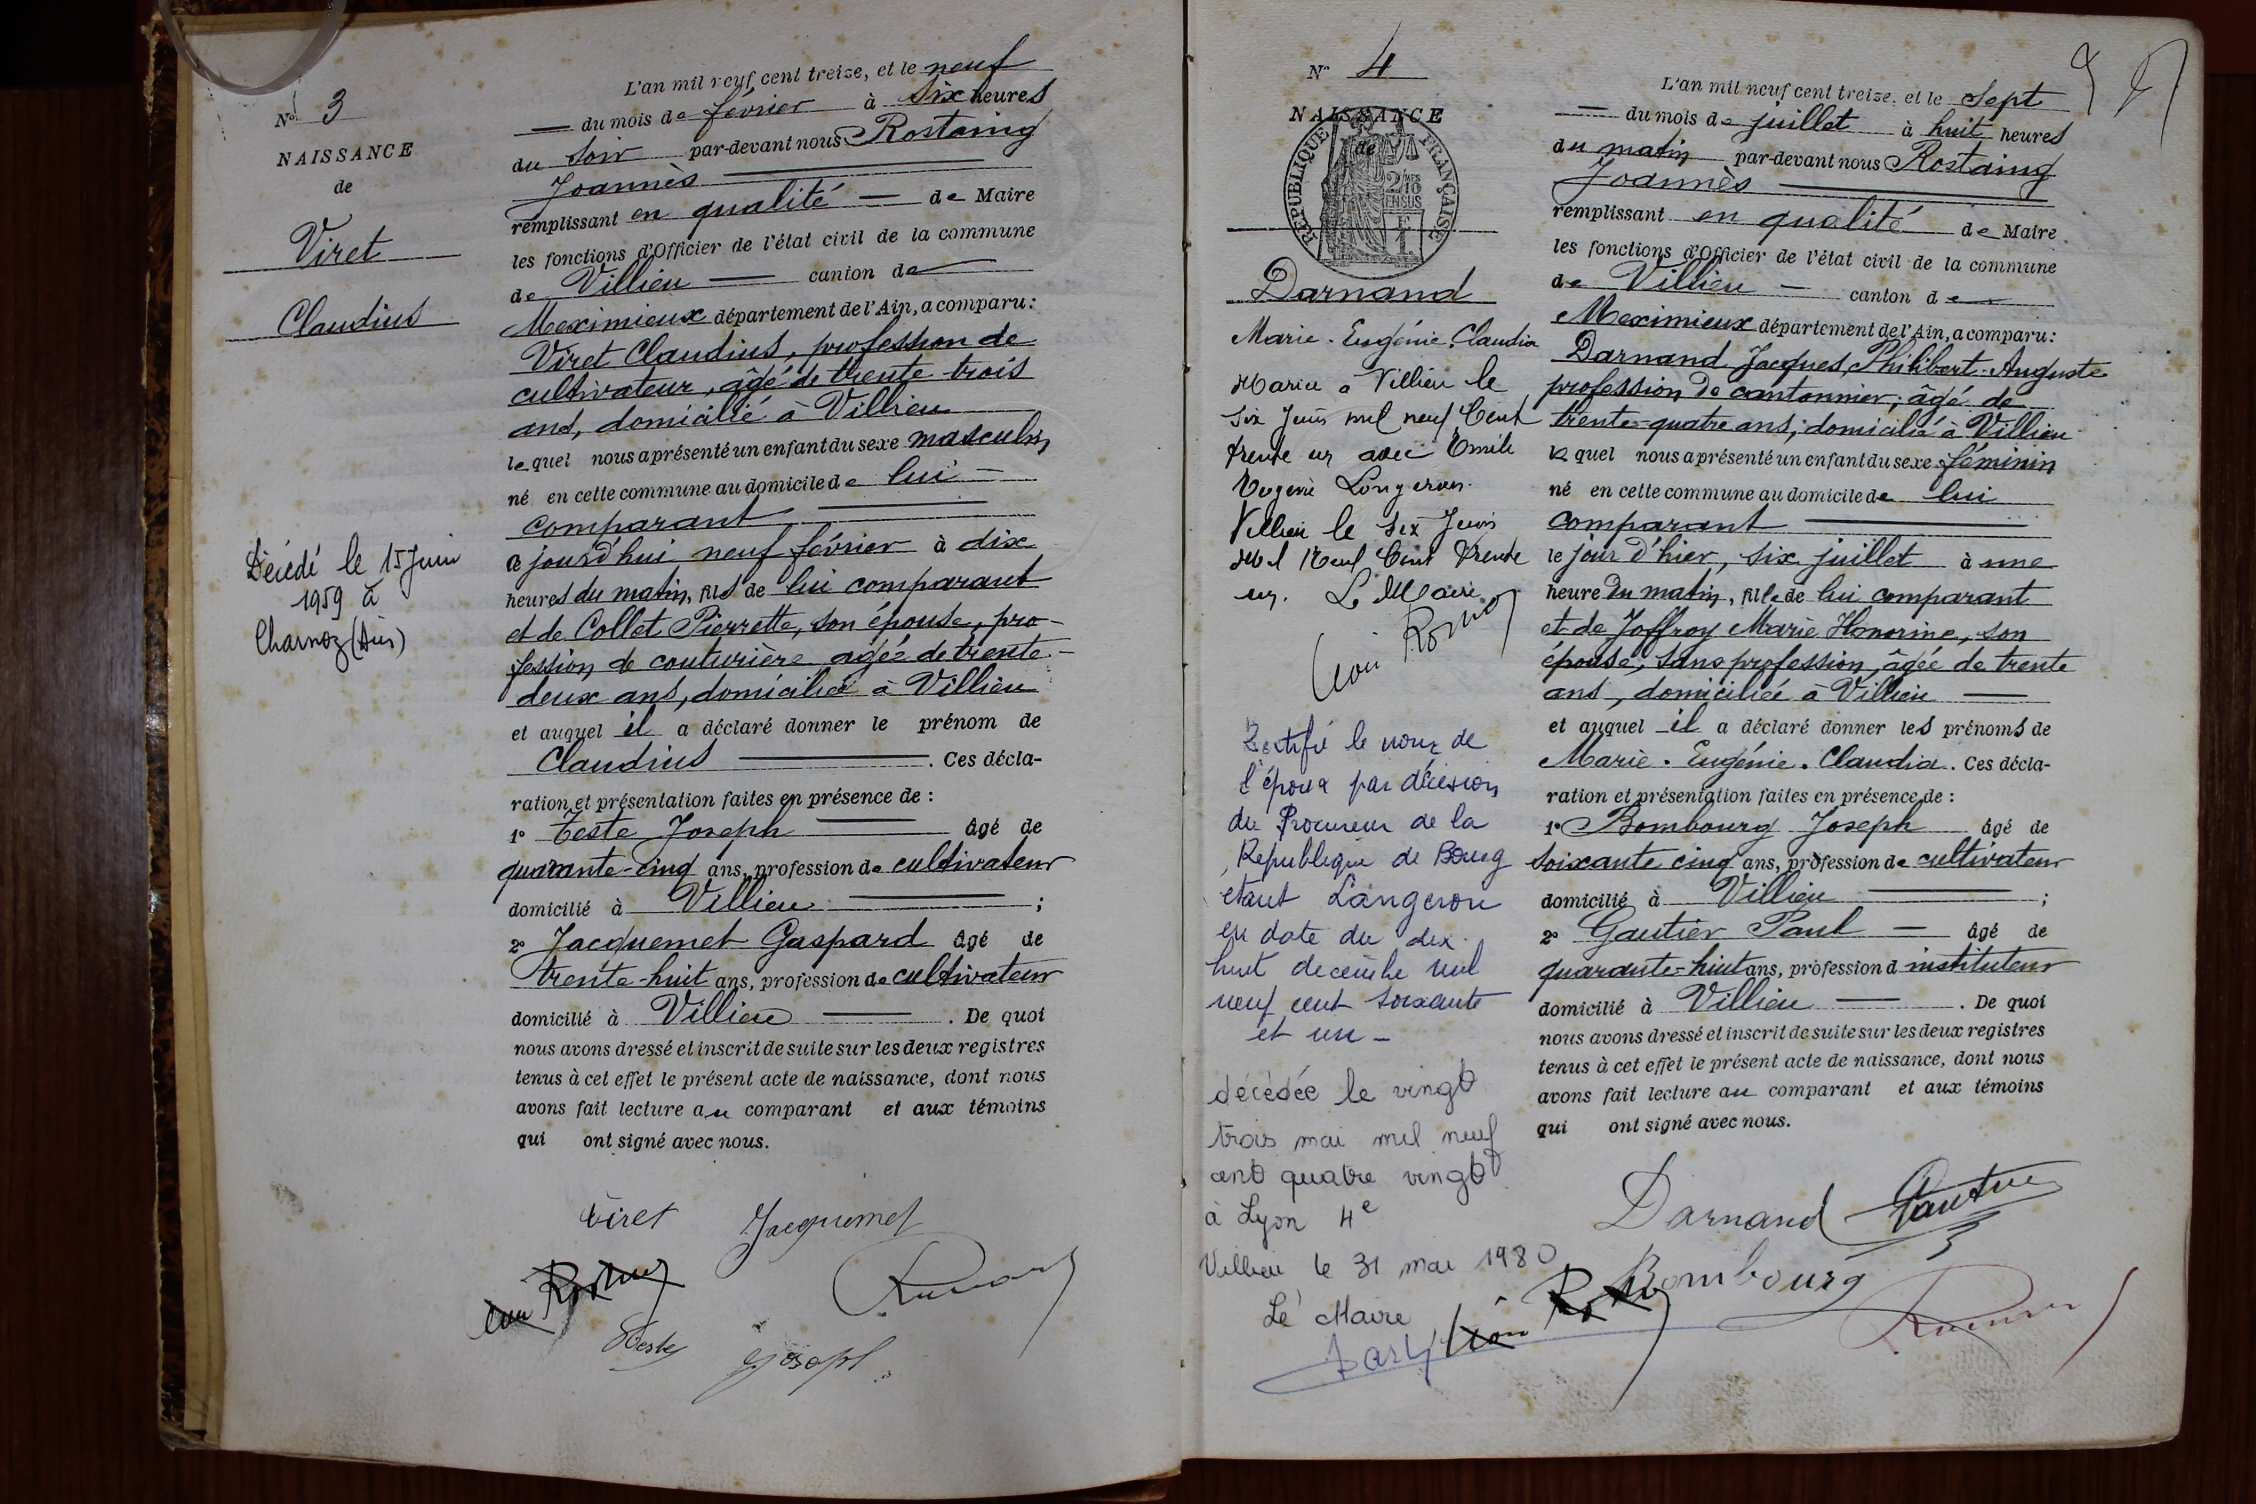 N° 3
NAISSANCE
de
Viret
Claudius
Décédé le 15 Juin
1959 à
Charnoz (Ain)
L'an mil neuf cent treize, et le neuf
— du mois de février à six heures
du soir par-devant nous Rostaing
Joannès
remplissant en qualité — de Maire
les fonctions d'Officier de l'état civil de la commune
de Villieu — canton de
Meximieux département de l'Ain, a comparu:
Viret Claudius, profession de
cultivateur, âgé de trente-trois
ans, domicilié à Villieu
lequel nous a présenté un enfant du sexe masculin,
né en cette commune au domicile de lui
comparant
ce jourd'hui neuf février à dix
heures du matin, fils de lui comparant
et de Collet Pierrette, son épouse, pro-
fession de couturière âgée de trente-
deux ans, domiciliée à Villieu
et auquel il a déclaré donner le prénom de
Claudius —. Ces décla-
ration et présentation faites en présence de :
1° Teste Joseph — âgé de
quarante-cinq ans, profession de cultivateur
domicilié à Villieu — ;
2° Jacquemet Gaspard âgé de
trente-huit ans, profession de cultivateur
domicilié à Villieu — . De quoi
nous avons dressé et inscrit de suite sur les deux registres
tenus à cet effet le présent acte de naissance, dont nous
avons fait lecture au comparant et aux témoins
qui ont signé avec nous.
Viret Jacquemet
Teste Joseph
N° 4
NAISSANCE
de
RÉPUBLIQUE FRANÇAISE
2/10
EN SUS
Darnand
Marie. Eugénie. Claudia
Mariée à Villieu le
Six Juin mil neuf Cent
trente un avec Emile
Eugène Longeron
Villieu le Six Juin
Mil Neuf Cent Trente
un. Le Maire
Rectifié le nom de
l'époux par décision
du Procureur de la
République de Bourg
étant Langeron
en date du dix
huit décembre mil
neuf cent soixante
et un -
décédée le vingt
trois mai mil neuf
cent quatre vingt
à Lyon 4e
Villieu le 31 mai 1980
Le Maire
L'an mil neuf cent treize, et le sept
— du mois de juillet à huit heures
du matin par-devant nous Rostaing
Joannès
remplissant en qualité de Maire
les fonctions d'Officier de l'état civil de la commune
de Villieu — canton de
Meximieux département de l'Ain, a comparu:
Darnand Jacques, Philibert-Auguste
profession de cantonnier, âgé de
trente-quatre ans, domicilié à Villieu
lequel nous a présenté un enfant du sexe féminin
né en cette commune au domicile de lui
comparant
le jour d'hier, six juillet à une
heure du matin, fille de lui comparant
et de Joffroy Marie Honorine, son
épouse, sans profession, âgée de trente
ans, domiciliée à Villieu —
et auquel il a déclaré donner les prénoms de
Marie. Eugénie. Claudia. Ces décla-
ration et présentation faites en présence de :
1° Bombourg Joseph âgé de
soixante cinq ans, profession de cultivateur
domicilié à Villieu — ;
2° Gautier Paul — âgé de
quarante-huit ans, profession d instituteur
domicilié à Villieu — . De quoi
nous avons dressé et inscrit de suite sur les deux registres
tenus à cet effet le présent acte de naissance, dont nous
avons fait lecture au comparant et aux témoins
qui ont signé avec nous.
Darnand Gautier
Bombourg